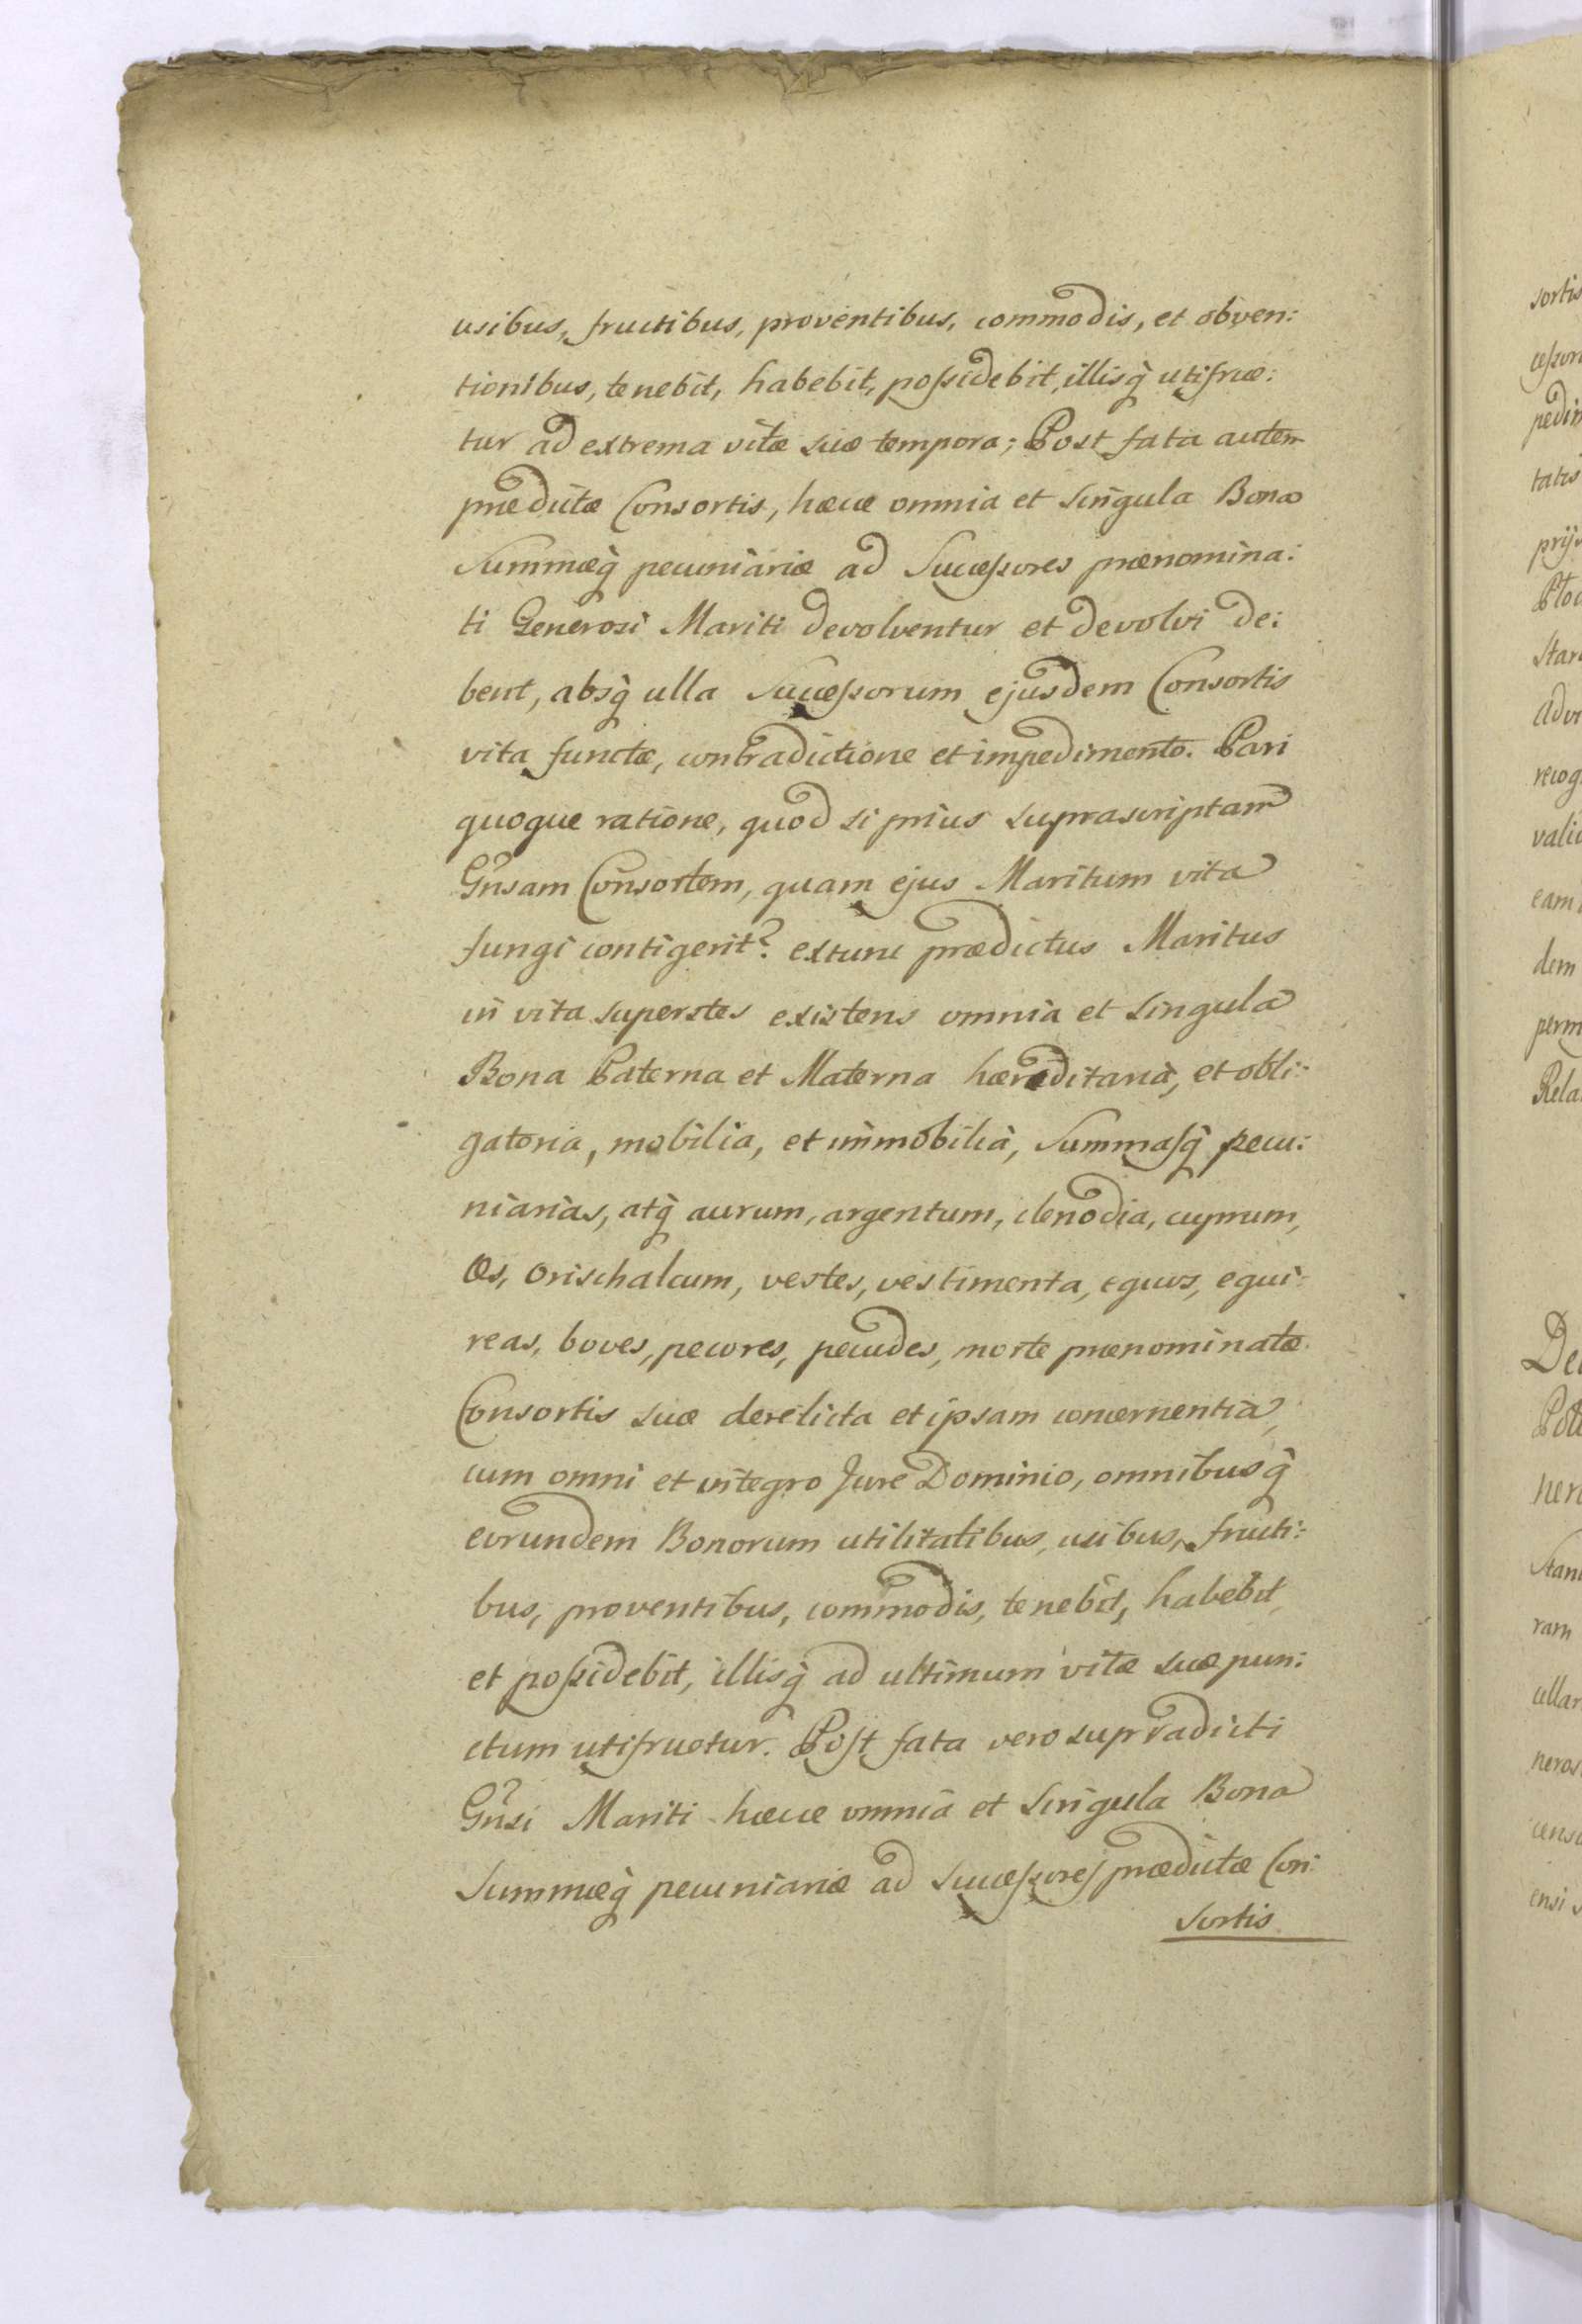 usibus, fructibus, proventibus, commodis, et obven:
tionibus, tenebit, habebit, possidebit, illisq̀ utifrue:
tur ad extrema vitæ suæ tempora; Post fata autem
prædictæ Consortis, hæce omnia et singula Bona
Summæq̀ pecuniariæ ad Successores prænomina:
ti Generosi Mariti devolventur et devolvi de:
bent, absq̀ ulla Successorum ejusdem Consortis
vita functæ, contradictione et impedimento. Pari
quoque ratione, quod si prius suprascriptam
Gnsam Consortem, quam ejus Maritum vita
fungi contigerit? extunc prædictus Maritus
in vita superstes existens omnia et singula
Bona Paterna et Materna hæreditaria, et obli:
gatoria, mobilia, et immobilia, Summasq̀ pecu:
niarias, atq̀ aurum, argentum, clenodia, cuprum,
Æs, Orischalcum, vestes, vestimenta, equos, equi:
reas, boves, pecores, pecudes, morte prænominatæ
Consortis suæ derelicta et ipsam concernentia,
cum omni et integro Jure Dominio, omnibusq̀
eorundem Bonorum utilitatibus, usibus, fructi:
bus, proventibus, commodis, tenebit, habebit,
et possidebit, illisq̀ ad ultimum vitæ suæ pun:
ctum utifruetur. Post fata vero supradicti
Gnsi Mariti hæce omnia et singula Bona
Summæq̀ pecuniariæ ad Successores prædictæ Con:
sortis
sortis
tatis
recog
eam
dem
perm
Rela
ram